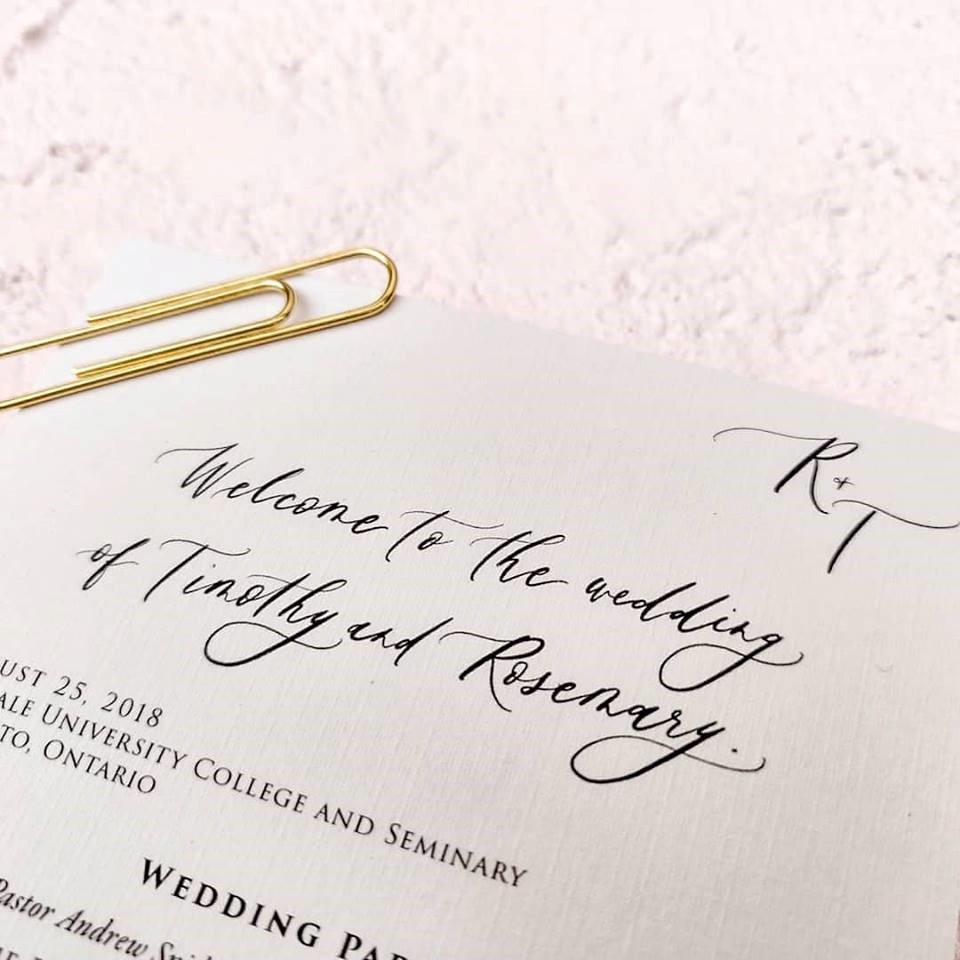 R +
T
Welcome to the wedding
of Timothy and Rosemary.
UST 25, 2018
ALE UNIVERSITY COLLEGE AND SEMINARY
TO, ONTARIO
WEDDING PAR
Pastor Andrew